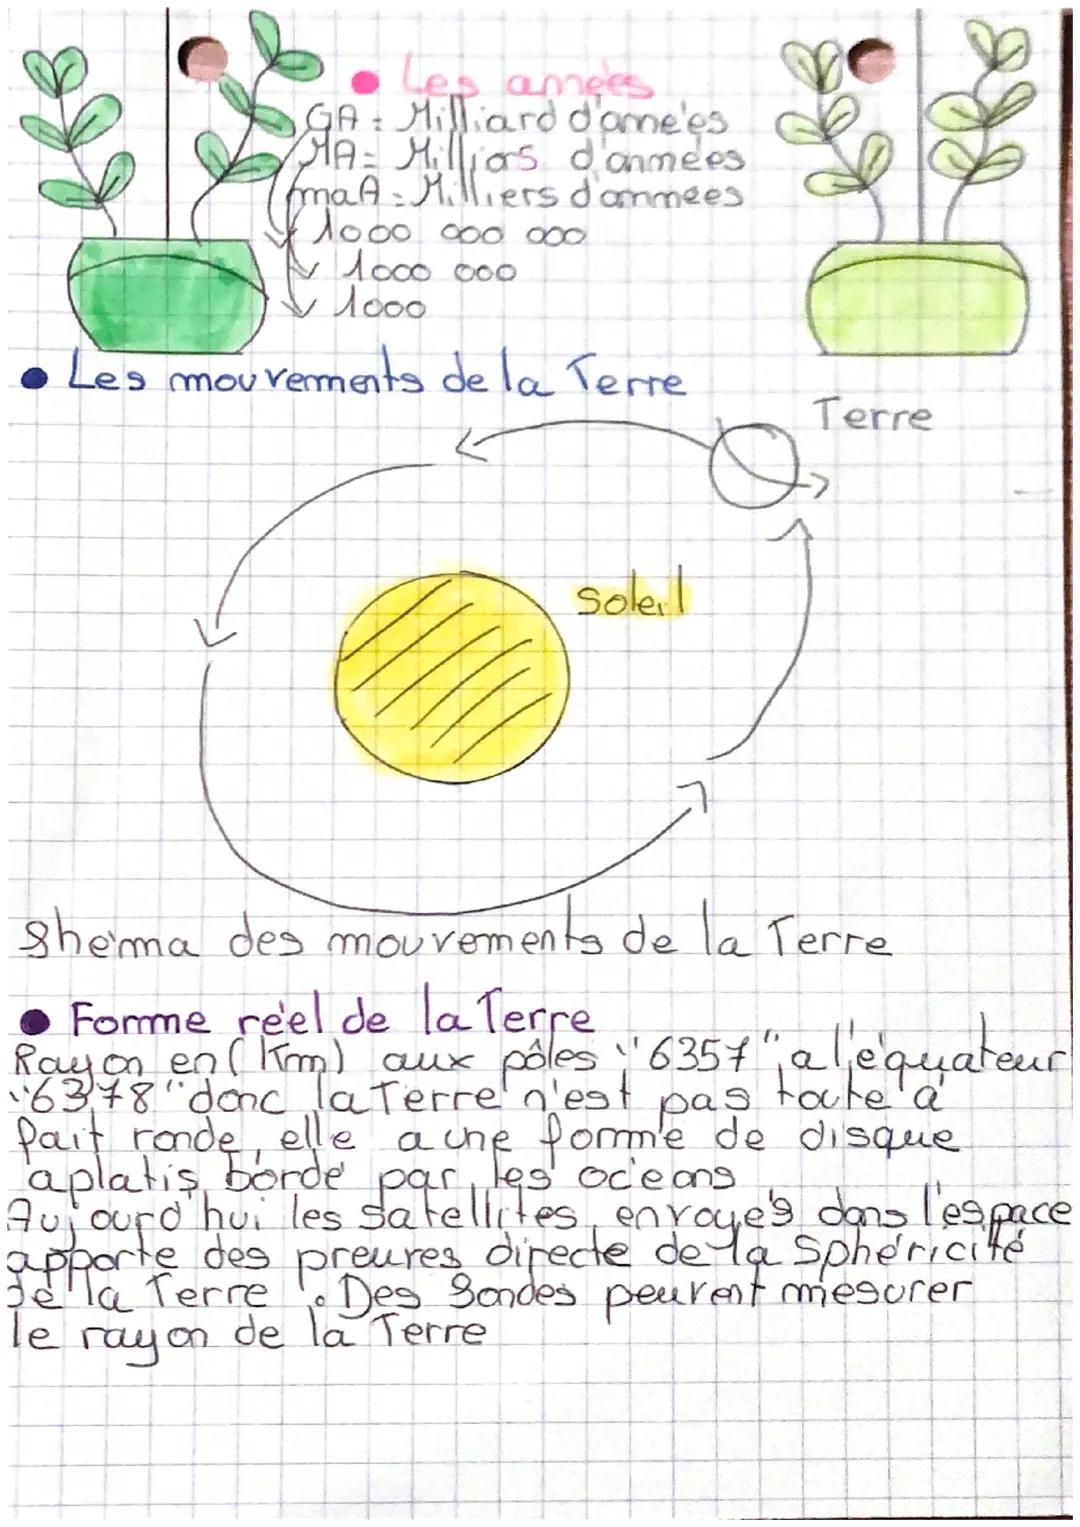 Les années
GA = Milliard d'années
MA = Millions d'années
maA = Milliers d'années
1000 000 000
1000 000
1000
Les mouvements de la Terre
Terre
soleil
Shéma des mouvements de la Terre
Forme réel de la Terre
Rayon en (Km) aux pôles "6357", a l'équateur
"6378" donc la Terre n'est pas toute à
fait ronde, elle a une forme de disque
aplatis bordé par les océans
Aujourd'hui les satellites, envoyés dans l'espace
apporte des preuves directe de la Sphéricité
de la Terre. Des Sondes peuvent mesurer
le rayon de la Terre